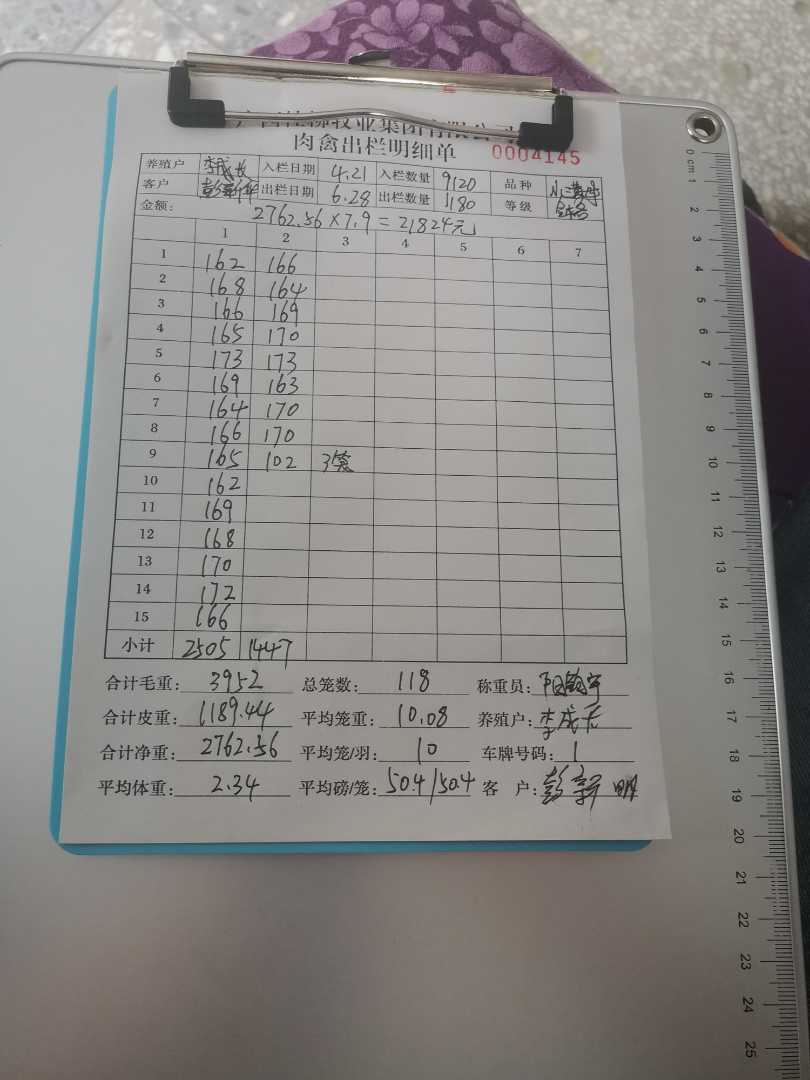 肉禽出栏明细单 0004145
养殖户 李成长 入栏日期 4.21 入栏数量 9120 品种
客户 出栏日期 6.28 出栏数量 1180 等级
金额: 2762.56×7.9=21824元
1 2 3 4 5 6 7
1 162 166
2 168 164
3 166 169
4 165 170
5 173 173
6 169 163
7 164 170
8 166 170
9 165 102 3笼
10 162
11 169
12 168
13 170
14 172
15 166
小计 2505 1447
合计毛重: 3952 总笼数: 118 称重员:
合计皮重: 1189.44 平均笼重: 10.08 养殖户: 李成长
合计净重: 2762.56 平均笼/羽: 10 车牌号码: 1
平均体重: 2.34 平均磅/笼: 50.4/50.4 客 户: 彭新明
0 cm 1 2 3 4 5 6 7 8 9 10 11 12 13 14 15 16 17 18 19 20 21 22 23 24 25